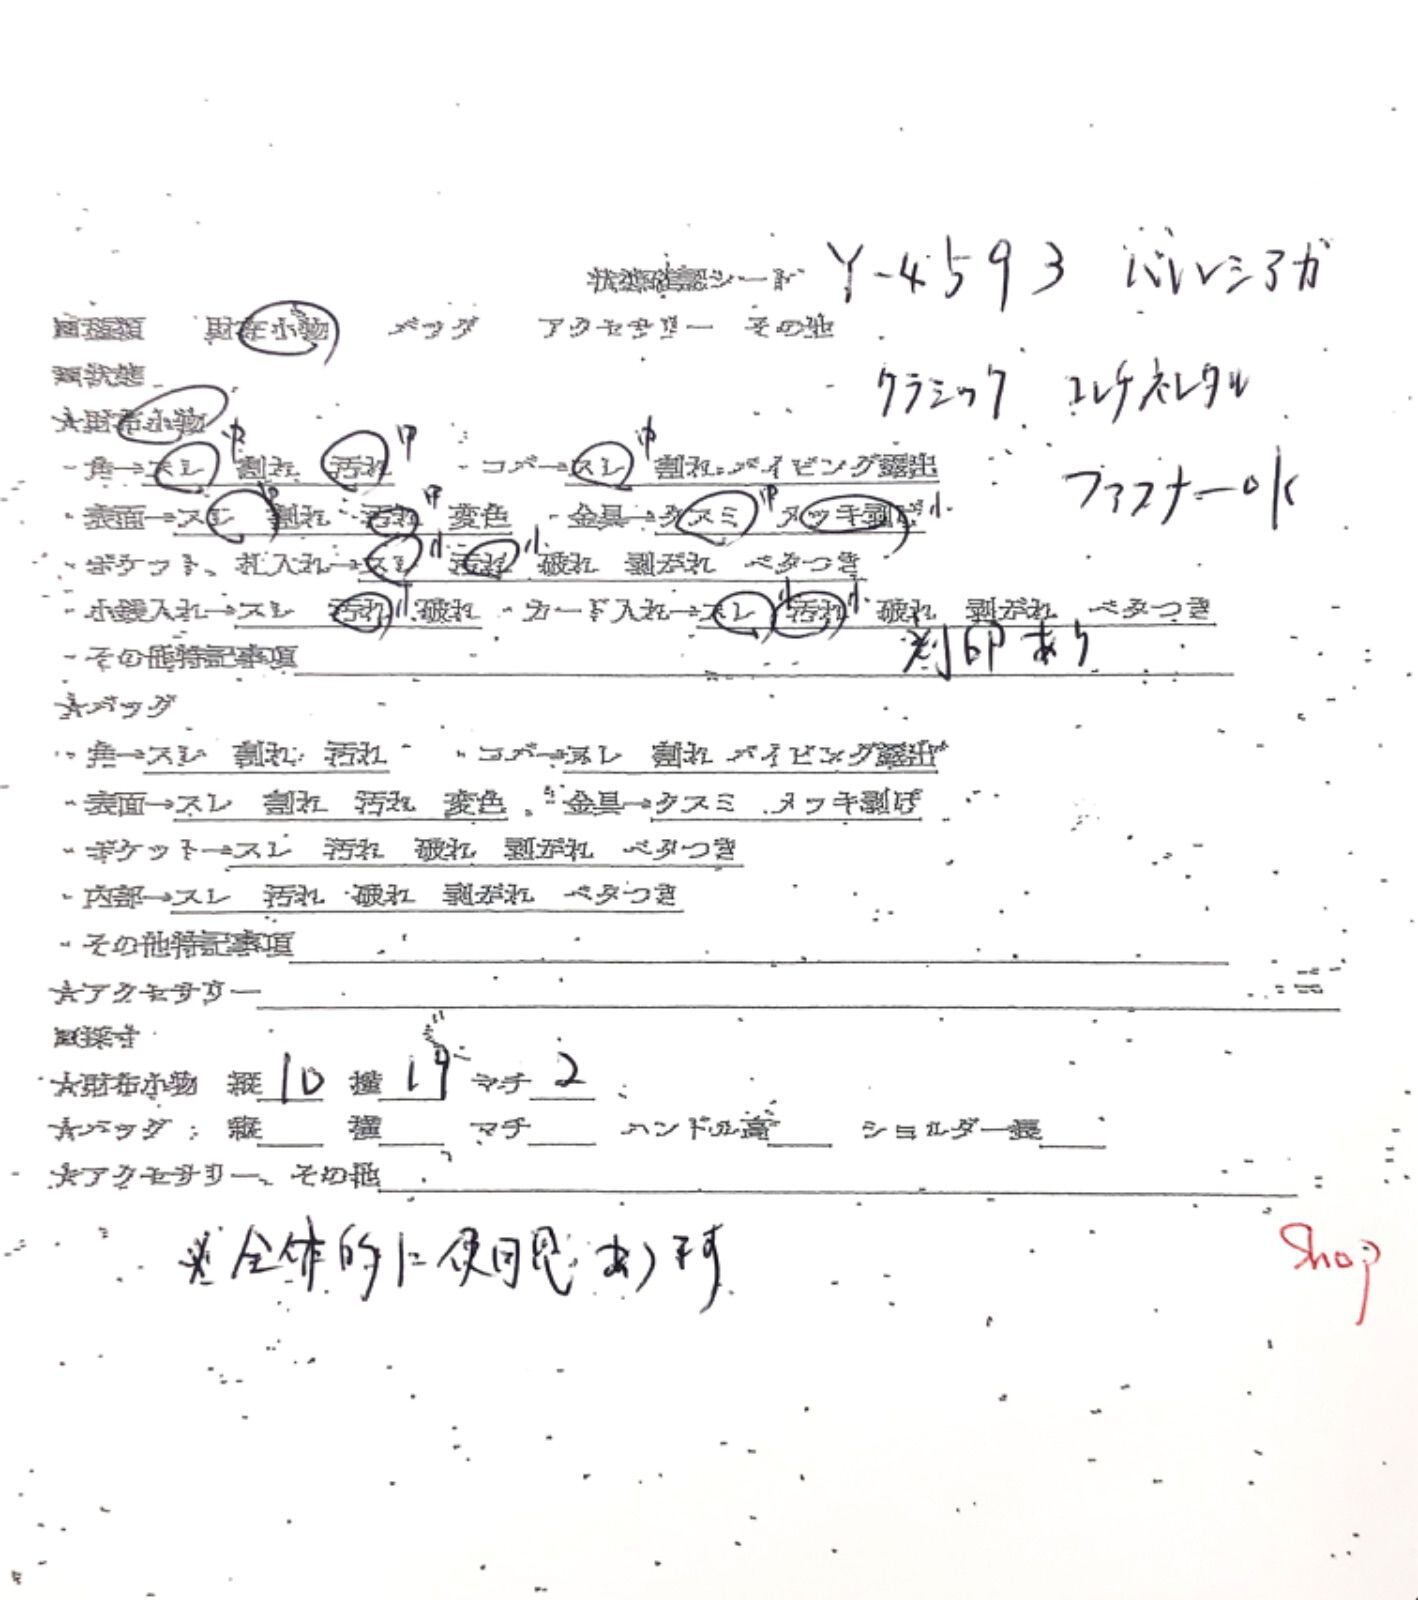 状態確認シート Y-4593 バレンシアガ
■種類 財布小物 バッグ アクセサリー その他
■状態 クラシック コンチネンタル
★財布小物
・角→スレ 中 割れ 汚れ 中 ・コバ→スレ 中 割れ パイピング露出 ファスナーok
・表面→スレ 中 割れ 汚れ 中 変色 ・金具→クスミ 中 メッキ剥げ 小
・ポケット、札入れ→スレ 小 汚れ 小 破れ 剥がれ ベタつき
・小銭入れ→スレ 汚れ 小 破れ ・カード入れ→スレ 小 汚れ 小 破れ 剥がれ ベタつき
・その他特記事項 刻印あり
★バッグ
・角→スレ 割れ 汚れ ・コバ→スレ 割れ パイピング露出
・表面→スレ 割れ 汚れ 変色 ・金具→クスミ メッキ剥げ
・ポケット→スレ 汚れ 破れ 剥がれ ベタつき
・内部→スレ 汚れ 破れ 剥がれ ベタつき
・その他特記事項
★アクセサリー
■採寸
★財布小物 縦 10 横 19 マチ 2
★バッグ 縦 横 マチ ハンドル高 ショルダー長
★アクセサリー、その他
※全体的に使用感あります
Shop